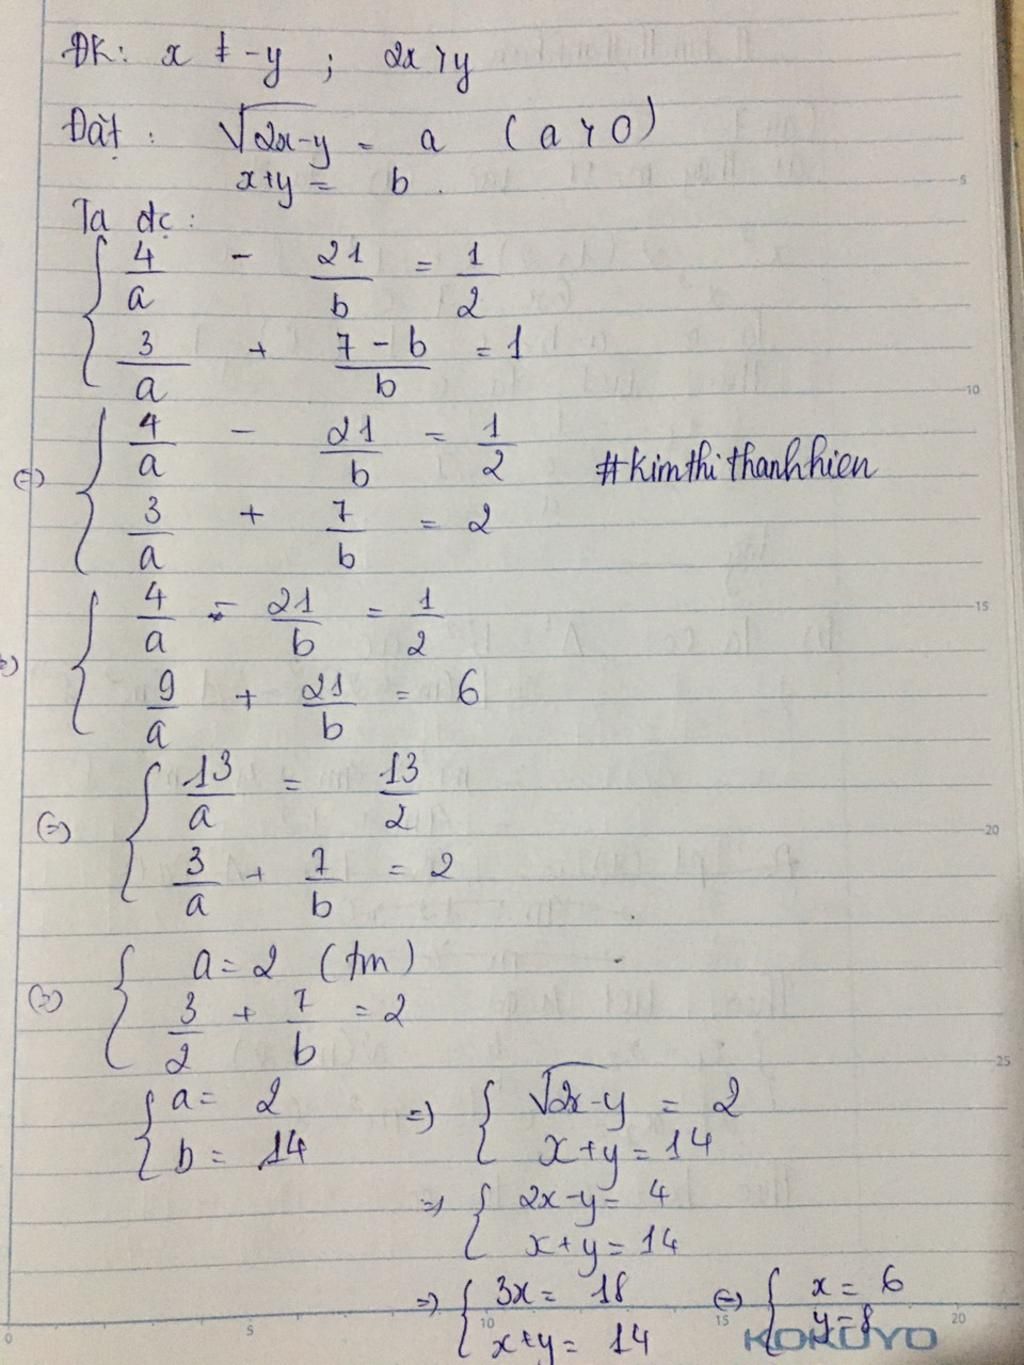 ĐK: x ≠ -y ; 2x > y
Đặt: √(2x-y) = a ( a > 0 )
x+y = b .
Ta đc:
{ 4/a - 21/b = 1/2
3/a + 7-b/b = 1
(=) { 4/a - 21/b = 1/2
3/a + 7/b = 2
#kimthithanhhien
{ 4/a - 21/b = 1/2
9/a + 21/b = 6
(=) { 13/a = 13/2
3/a + 7/b = 2
(=) { a = 2 (tm)
3/2 + 7/b = 2
{ a = 2
b = 14
=) { √(2x-y) = 2
x+y = 14
=) { 2x-y = 4
x+y = 14
=) { 3x = 18
x+y = 14
(=) { x = 6
y = 8
KOKUYO
5
10
15
20
25
0
5
10
15
20